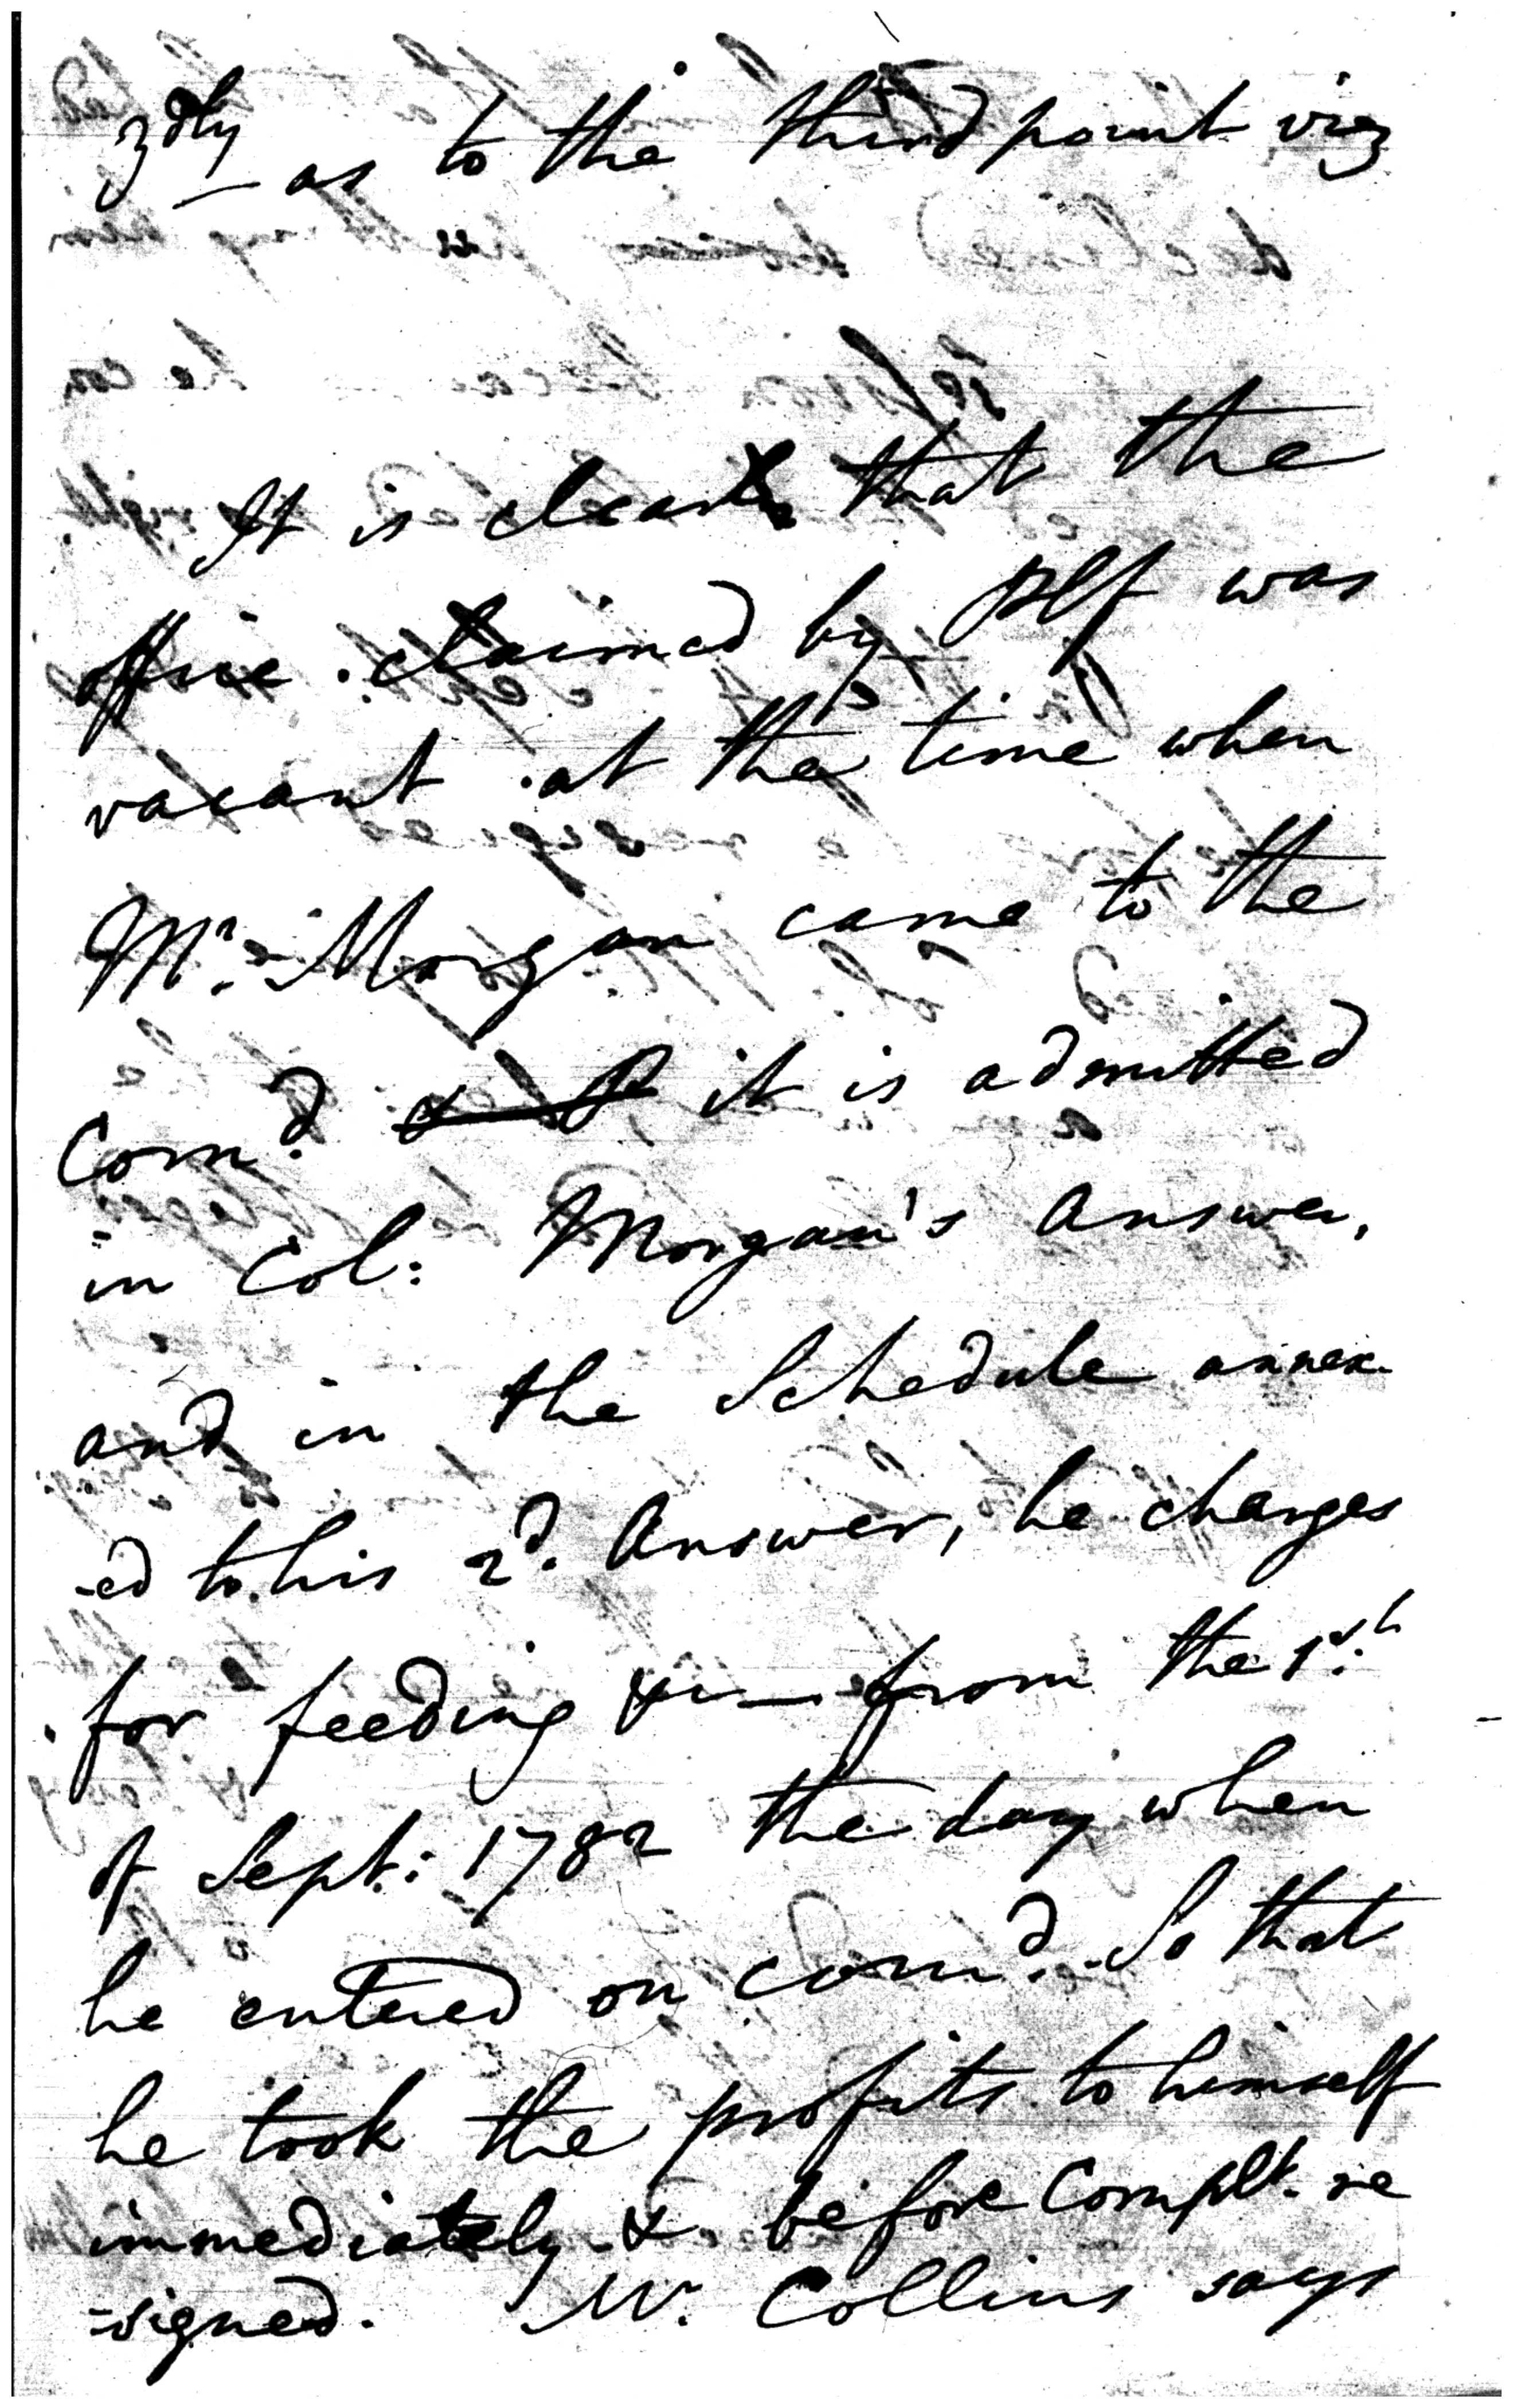 3dly as to the third point viz
It is clear that the
office claimed by Plf was
vacant at the time when
Mr. Morgan came to the
Comd. it is admitted
in Col: Morgan's Answer,
and in the Schedule annex-
-ed to his 2d. Answer, he charges
for feeding &c from the
of Sept: 1782 the day when
he entered on Comd. So that
he took the profits to himself
immediately & before Complt. re
-signed. Mr. Collins says